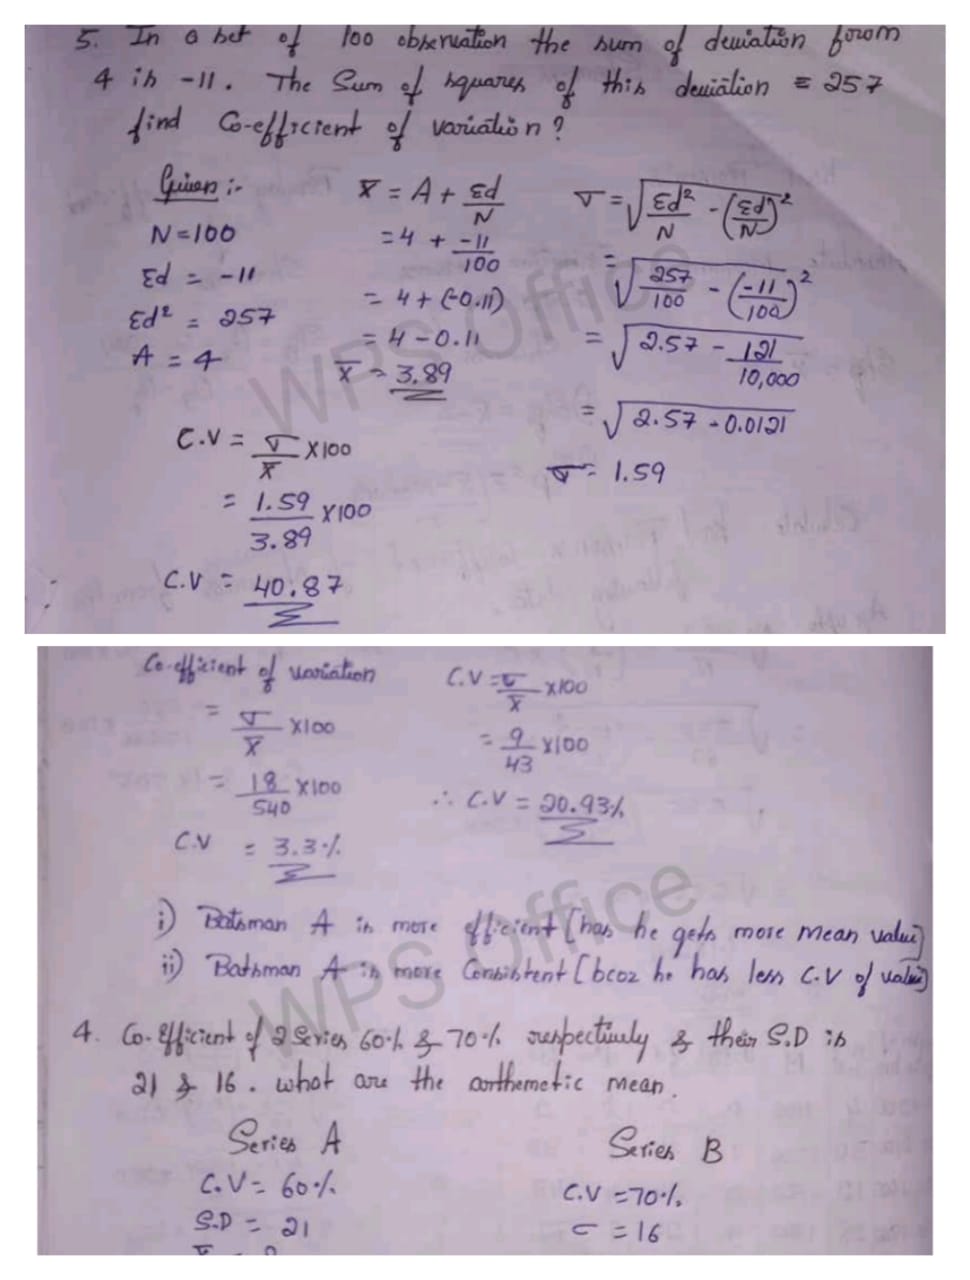 5. In a set of 100 observation the sum of deviation from
4 is -11. The Sum of squares of this deviation = 257
find Co-efficient of variation?
Given :-
N = 100
Σd = -11
Σd² = 257
A = 4
X̄ = A + Σd/N
= 4 + -11/100
= 4 + (-0.11)
= 4 - 0.11
X̄ = 3.89
σ = √(Σd²/N - (Σd/N)²)
= √(257/100 - (-11/100)²)
= √(2.57 - 121/10,000)
= √(2.57 - 0.0121)
σ = 1.59
C.V = σ/X̄ X100
= 1.59/3.89 X100
C.V = 40.87
Co-efficient of variation
= σ/X̄ X100
= 18/540 X100
C.V = 3.3%
C.V = σ/X̄ X100
= 9/43 X100
∴ C.V = 20.93%
i) Batsman A is more efficient [has he gets more mean value]
ii) Batsman A is more Consistent [bcoz he has less C.V of value]
4. Co-efficient of 2 Series 60% & 70% respectively & their S.D is
21 & 16. what are the arthemetic mean.
Series A
C.V = 60%
S.D = 21
Series B
C.V = 70%
σ = 16
WPS Office
WPS Office